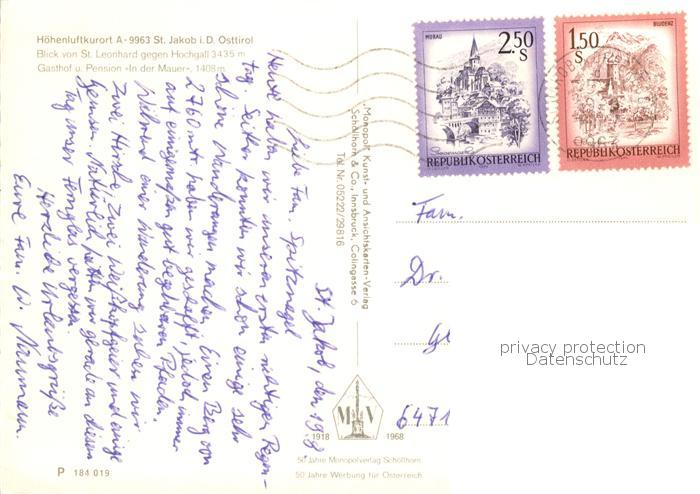 Höhenluftkurort A-9963 St. Jakob i. D. Osttirol
Blick von St. Leonhard gegen Hochgall 3435 m
Gasthof u. Pension »In der Mauer«, 1408 m
St. Jakob, den 19.8.
Liebe Fam. Spitznagel
Heute haben wir unseren ersten richtigen Regen-
tag. Seither konnten wir schon einige sehr
schöne Wanderungen machen. Einen Berg von
2760 mtr. haben wir geschafft, jedoch immer
auf einigermaßen gut begehbaren Pfaden.
Während einer Wanderung sahen wir
zwei Hirsche, zwei Weißkopfgeier und einige
Gemsen. Natürlich hatten wir gerade an diesem
Tag unser Fernglas vergessen.
Herzliche Urlaubsgrüße
Eure Fam. W. Naumann.
P 184 019
Monopol, Kunst- und Ansichtskarten-Verlag
Schöllhorn & Co., Innsbruck, Colingasse 6
Tel. Nr. 05222/29816
MURAU
2.50
S
REPUBLIK ÖSTERREICH
BLUDENZ
1.50
S
REPUBLIK ÖSTERREICH
Fam.
Dr.
6471
privacy protection
Datenschutz
M V
1918 1968
50 Jahre Monopolverlag Schöllhorn
50 Jahre Werbung für Österreich